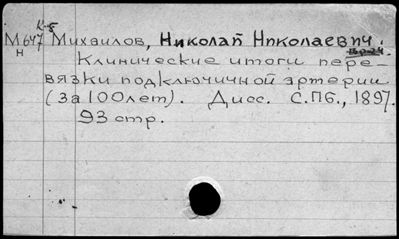 К-5
М647 Михайлов, Николай Николаевич.
Н
Клинические итоги пере-
вязки подключичной артерии
(за 100 лет). Дисс. С.Пб., 1897.
93 стр.